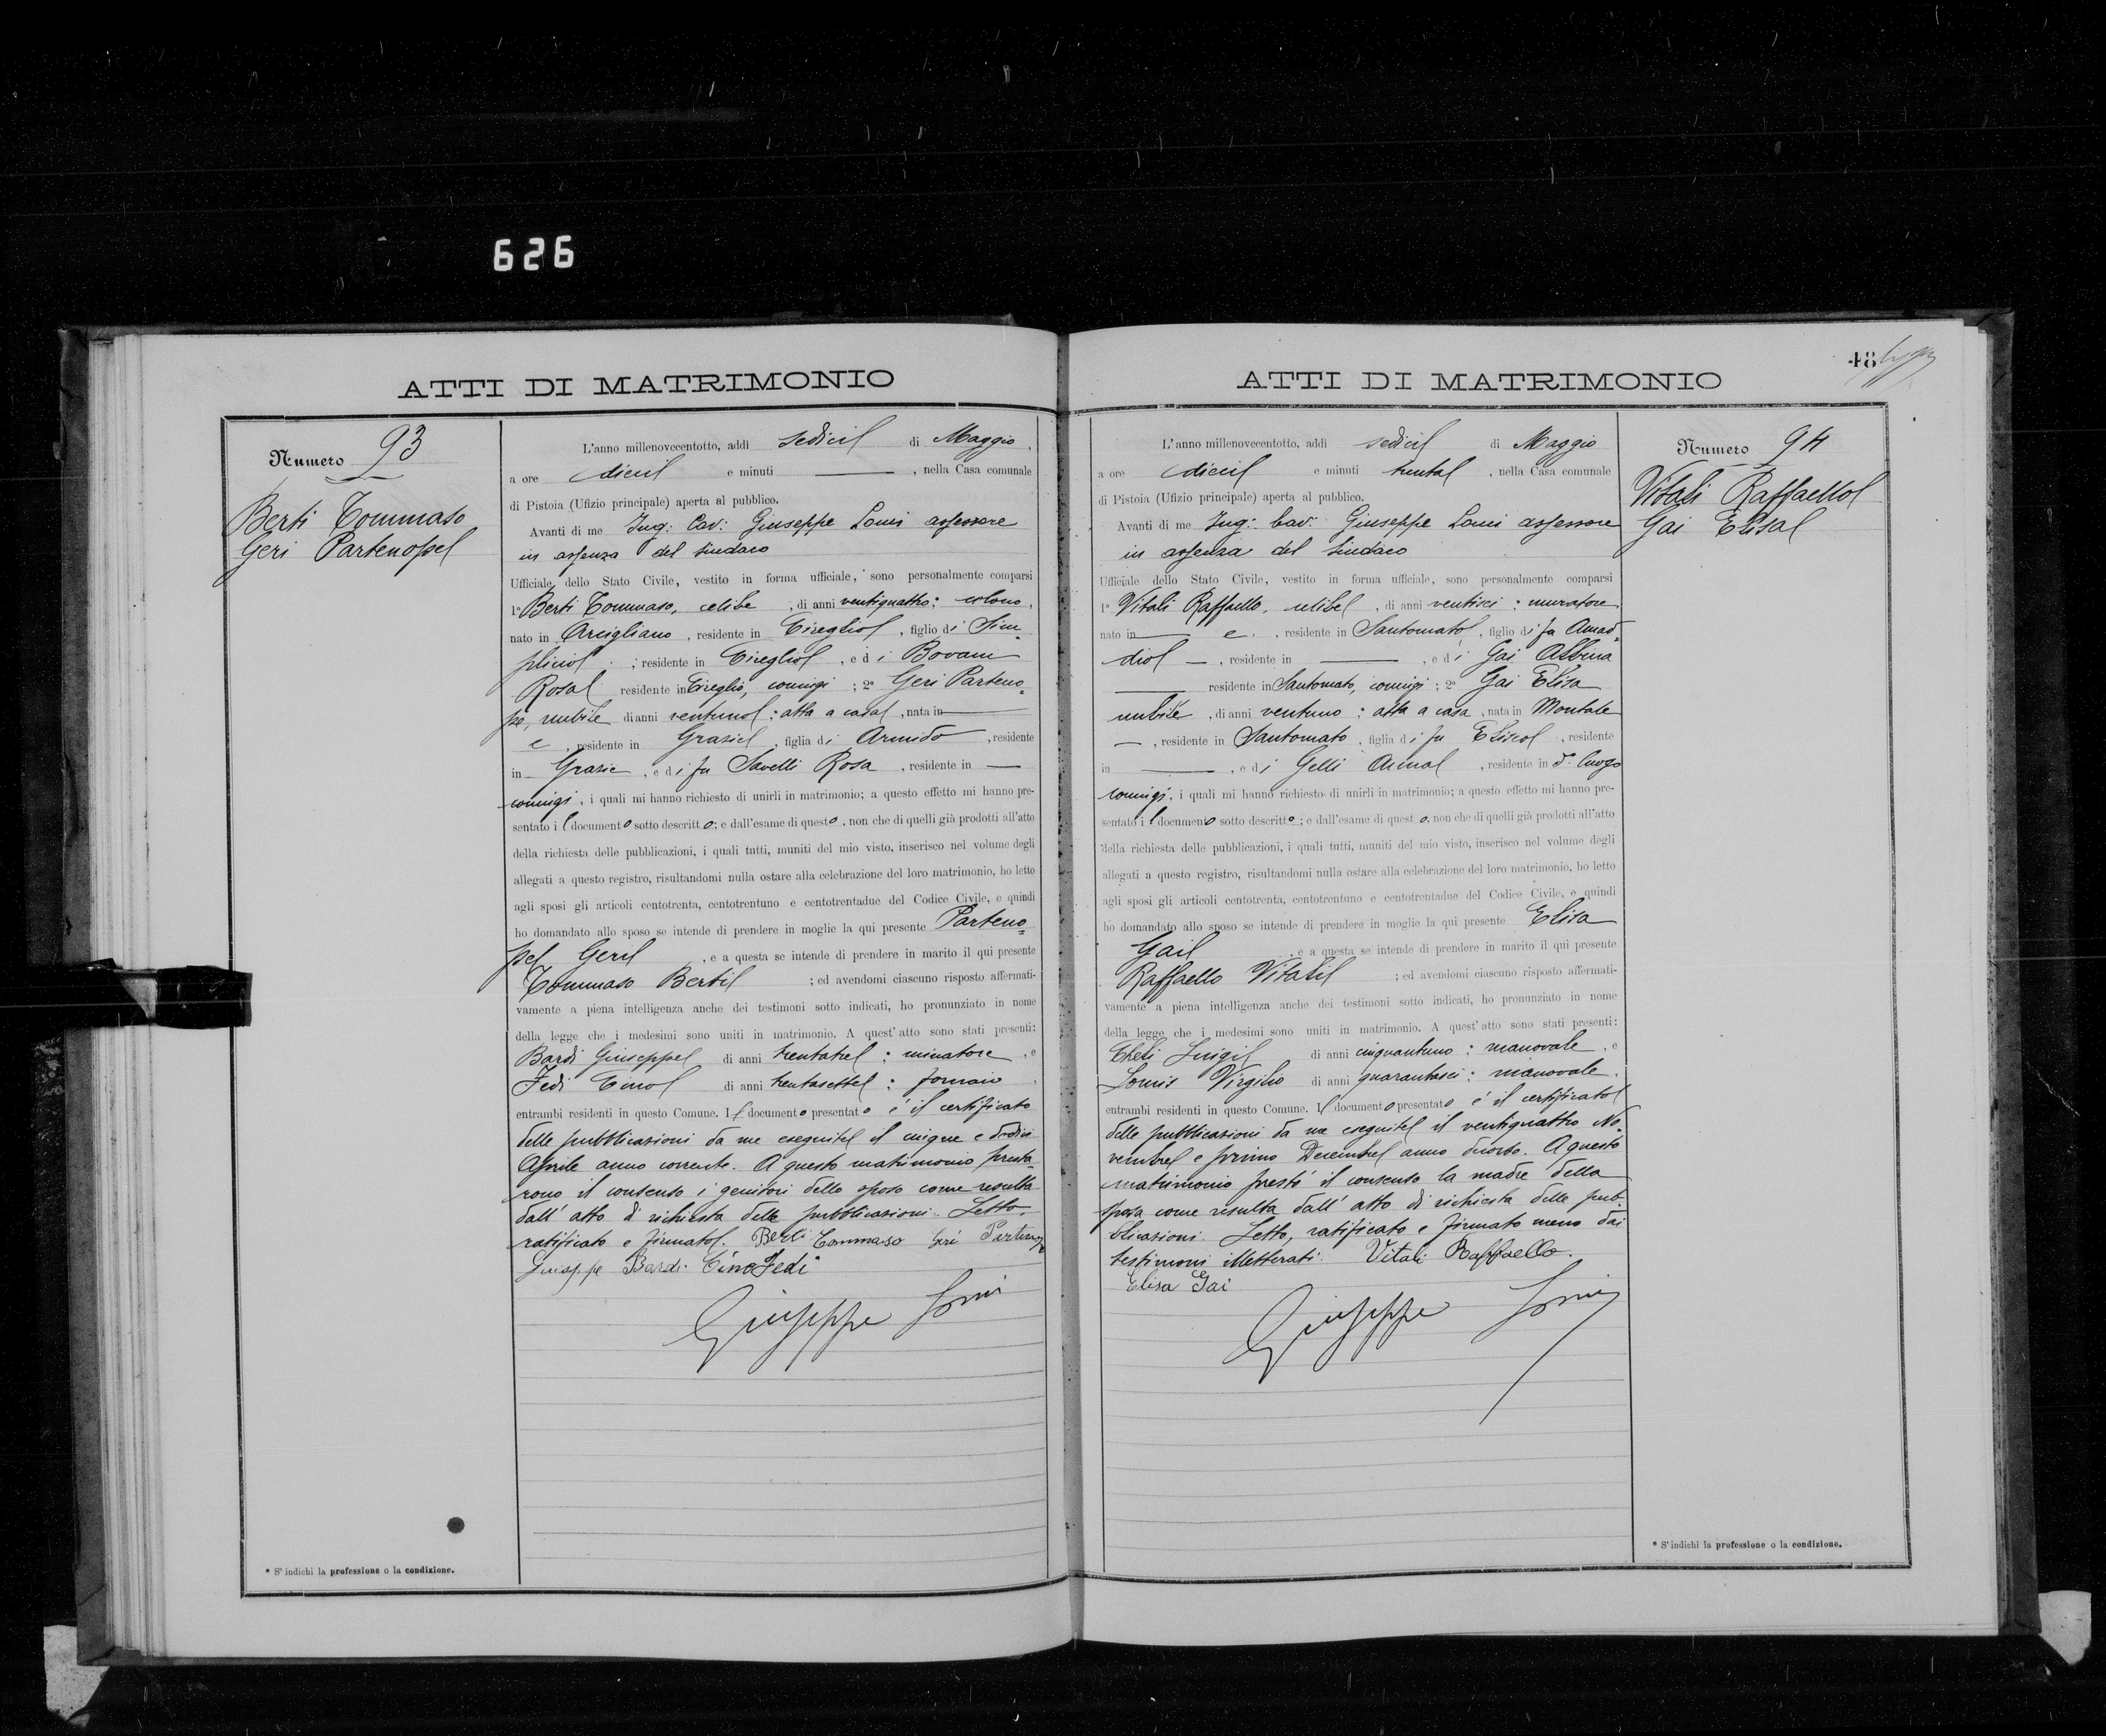 626
ATTI DI MATRIMONIO
Numero 93
Berti Tommaso
Geri Partenope
L'anno millenovecentotto, addì sedici di Maggio,
a ore dieci e minuti —, nella Casa comunale
di Pistoia (Ufizio principale) aperta al pubblico.
Avanti di me Ing: Cav: Giuseppe Lomi assessore
in assenza del Sindaco
Ufficiale dello Stato Civile, vestito in forma ufficiale, sono personalmente comparsi
1º Berti Tommaso, celibe, di anni ventiquattro; colono,
nato in Arcigliano, residente in Cireglio, figlio di Sim=
plicio, residente in Cireglio, e di Bovani
Rosa residente in Cireglio, coniugi; 2º Geri Parteno=
pe, nubile di anni ventuno; atta a casa, nata in —
e, residente in Grazie, figlia di Armido, residente
in Grazie, e di fu Savelli Rosa, residente in —
coniugi, i quali mi hanno richiesto di unirli in matrimonio; a questo effetto mi hanno pre-
sentato il documento sotto descritto; e dall'esame di questo, non che di quelli già prodotti all'atto
della richiesta delle pubblicazioni, i quali tutti, muniti del mio visto, inserisco nel volume degli
allegati a questo registro, risultandomi nulla ostare alla celebrazione del loro matrimonio, ho letto
agli sposi gli articoli centotrenta, centotrentuno e centotrentadue del Codice Civile, e quindi
ho domandato allo sposo se intende di prendere in moglie la qui presente Parteno=
pe Geri, e a questa se intende di prendere in marito il qui presente
Tommaso Berti; ed avendomi ciascuno risposto affermati-
vamente a piena intelligenza anche dei testimoni sotto indicati, ho pronunziato in nome
della legge che i medesimi sono uniti in matrimonio. A quest'atto sono stati presenti:
Bardi Giuseppe di anni trentatre; minatore, e
Fedi Cino di anni trentasette; fornaio,
entrambi residenti in questo Comune. Il documento presentato è il certificato
delle pubblicazioni da me eseguite il cinque e dodici
Aprile anno corrente. A questo matrimonio presta-
rono il consenso i genitori dello sposo come resulta
dall'atto di richiesta delle pubblicazioni. Letto,
ratificato e firmato. Berti Tommaso Geri Partenope
Giuseppe Bardi Cino Fedi
Giuseppe Lomi
* S'indichi la professione o la condizione.
48
ATTI DI MATRIMONIO
Numero 94
Vitali Raffaello
Gai Elisa
L'anno millenovecentotto, addì sedici di Maggio
a ore dieci e minuti trenta, nella Casa comunale
di Pistoia (Ufizio principale) aperta al pubblico.
Avanti di me Ing: Cav: Giuseppe Lomi assessore
in assenza del Sindaco
Ufficiale dello Stato Civile, vestito in forma ufficiale, sono personalmente comparsi
1º Vitali Raffaello, celibe, di anni ventisei; muratore
nato in — e, residente in Santomato, figlio di fu Amad=
dio —, residente in —, e di Gai Albina
— residente in Santomato, coniugi; 2º Gai Elisa
nubile, di anni ventuno; atta a casa, nata in Montale
—, residente in Santomato, figlia di fu Eliseo, residente
in —, e di Gelli Anna, residente in dº luogo
coniugi, i quali mi hanno richiesto di unirli in matrimonio; a questo effetto mi hanno pre-
sentato il documento sotto descritto; e dall'esame di questo, non che di quelli già prodotti all'atto
della richiesta delle pubblicazioni, i quali tutti, muniti del mio visto, inserisco nel volume degli
allegati a questo registro, risultandomi nulla ostare alla celebrazione del loro matrimonio, ho letto
agli sposi gli articoli centotrenta, centotrentuno e centotrentadue del Codice Civile, e quindi
ho domandato allo sposo se intende di prendere in moglie la qui presente Elisa
Gai, e a questa se intende di prendere in marito il qui presente
Raffaello Vitali; ed avendomi ciascuno risposto affermati-
vamente a piena intelligenza anche dei testimoni sotto indicati, ho pronunziato in nome
della legge che i medesimi sono uniti in matrimonio. A quest'atto sono stati presenti:
Cheli Luigi di anni cinquantuno; manovale, e
Virgilio di anni quarantasei; manovale,
entrambi residenti in questo Comune. Il documento presentato è il certificato
delle pubblicazioni da me eseguite il ventiquattro No=
vembre e primo Decembre anno decorso. A questo
matrimonio prestò il consenso la madre della
sposa come resulta dall'atto di richiesta delle pub-
blicazioni. Letto, ratificato e firmato meno dai
testimoni illetterati. Vitali Raffaello.
Elisa Gai
Giuseppe Lomi
* S'indichi la professione o la condizione.